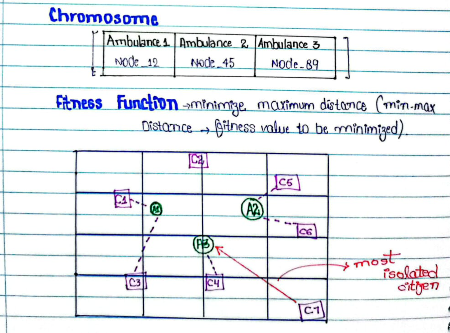 Chromosome
Ambulance 1 Ambulance 2 Ambulance 3
Node_12 Node_45 Node_89
Fitness Function → minimize maximum distance (min-max
Distance → fitness value to be minimized).
C2
C5
C1
A1
A2
C6
A3
C3
C4
most
isolated
citizen
C7